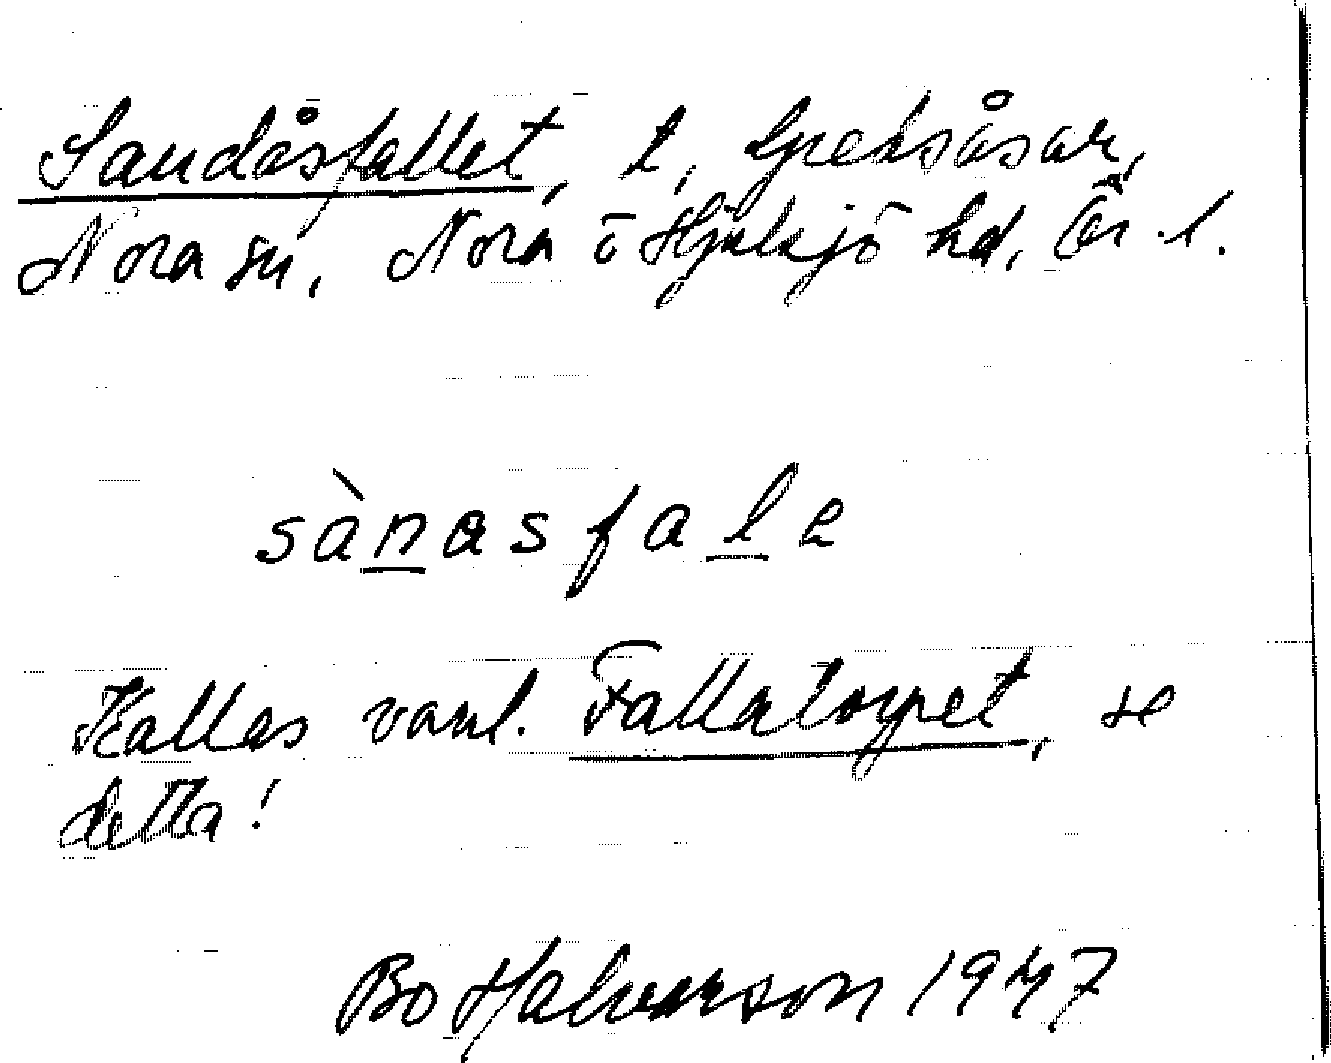 Sandåsfallet, t, Greksåsar,
Nora sn, Nora o Hjulsjö hd, Ör. l.
sànasfale
Kallas vanl. Fallatorpet, se
detta!
Bo Halvarson 1947